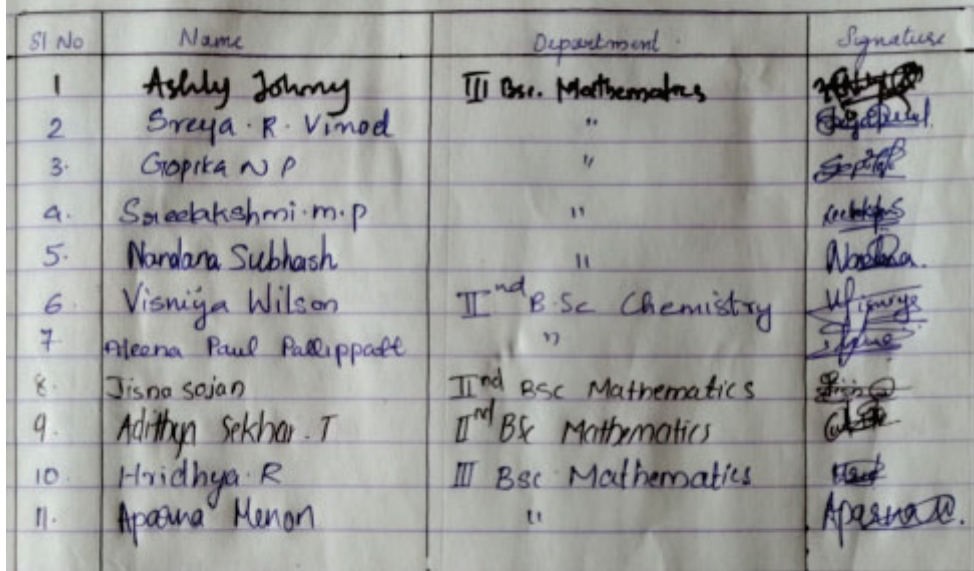 Sl No Name Department. Signature
1 Ashly Johny III Bsc. Mathematics
2 Sreya. R. Vinod "
3. Gopika N P "
4. Sreelakshmi.m.p "
5. Nandana Subhash " Nandana.
6. Visniya Wilson IInd B.Sc Chemistry
7 Aleena Paul "
8. Jisna sojan IInd BSc Mathematics
9. Sekhar. T IInd BSc Mathematics
10. Hridhya. R III Bsc Mathematics
11. Aparna Menon " Aparna